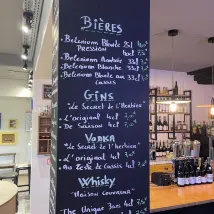 Bières
Belenium Blonde 25cl
Pression 50cl
Belenium Ambrée 33cl
Belenium Blanche 33cl
Belenium Blonde au 33cl
cassis
Gins
"Le Secret de l'Herbier"
L'original 4cl
De Saison 4cl
Vodka
"Le Secret de l'herbier"
L'original 4cl
Au Zeste de Cassis 4cl
Whisky
"Maison
The Unique 3ans 4cl